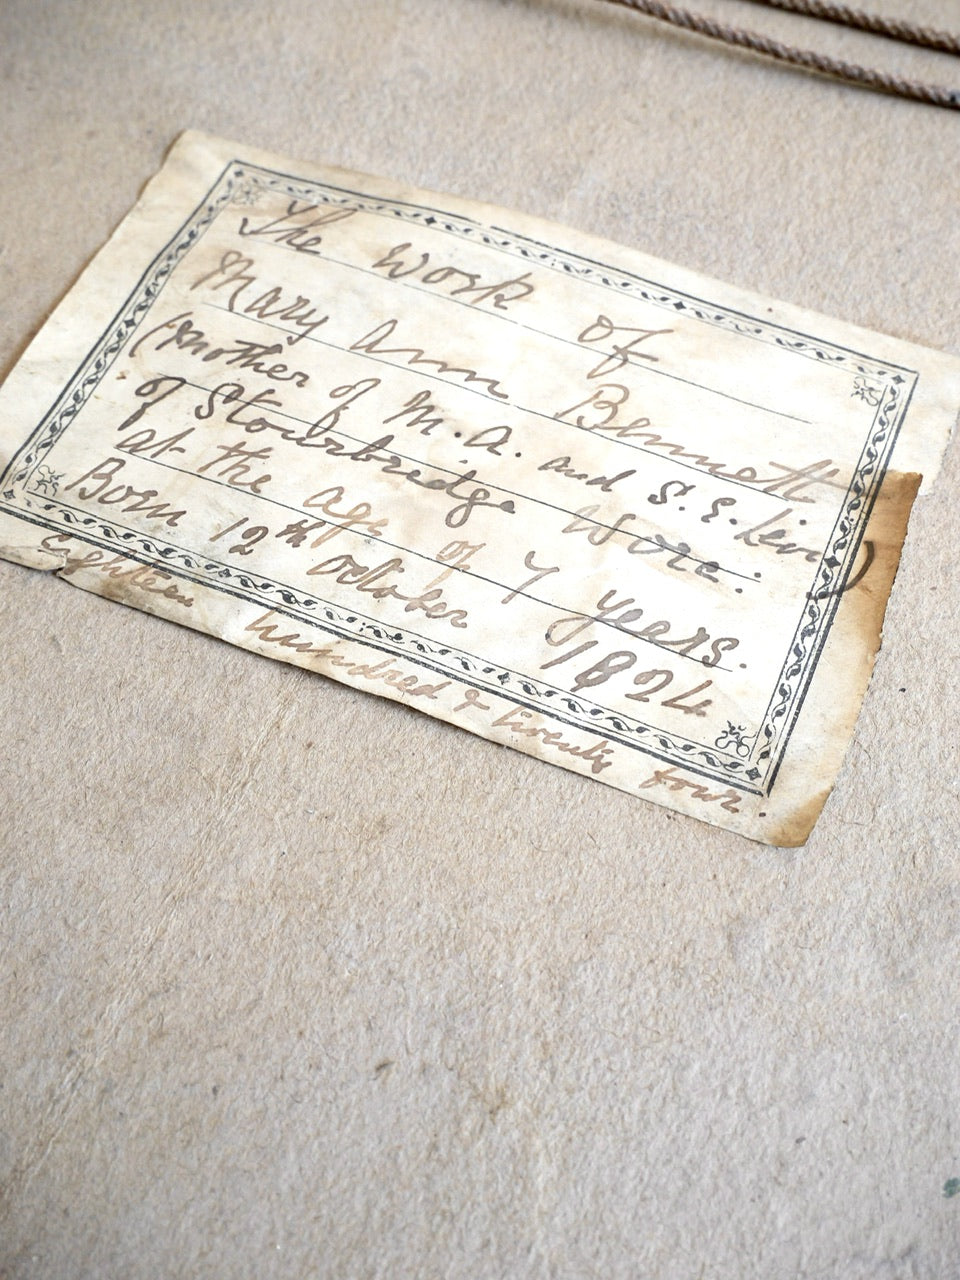 The Work of
Mary Ann Bennett
(Mother of M. A. and S. E. Levy)
of Stourbridge Worc.
at the age of 7 years.
Born 12th October 1824
Eighteen hundred & twenty four.